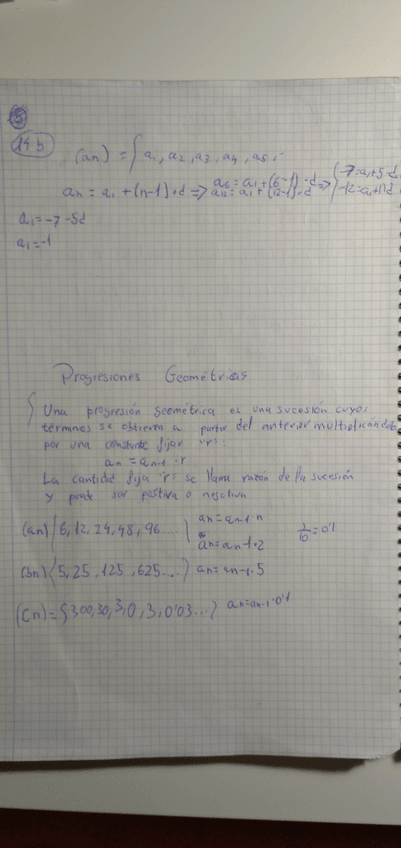 14 b
(an) = { a1, a2, a3, a4, a5, ..
an = a1 + (n-1) · d => a6 = a1 + (6-1) · d => { -7 = a1 + 5 · d
a12 = a1 + (12-1) · d { -12 = a1 + 11 d
a1 = -7 -5d
a1 = -1
Progresiones Geométricas
Una progresión geométrica es una sucesión cuyos
términos se obtienen a partir del anterior multiplicándolo
por una constante fijar "r":
an = an-1 · r
La cantidad fija "r" se llama razón de la sucesión
y puede ser positiva o negativa
(an) { 6, 12, 24, 48, 96.... } an = an-1 n
an = an-1 · 2 1/10 = 0'1
(bn) { 5, 25, 125, 625.... } an = an-1 · 5
(Cn) = { 300, 30, 3, 0, 3, 0'03 ... } an = an-1 · 0'1